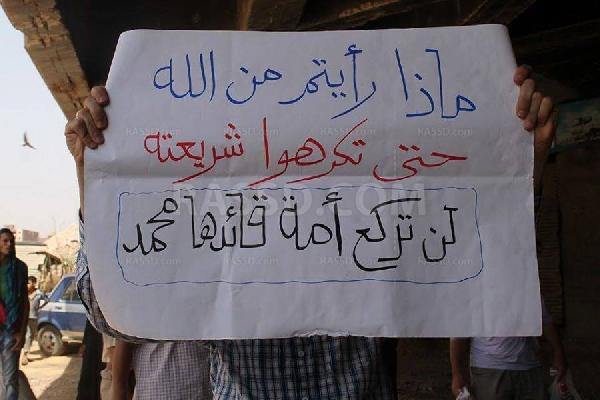 ماذا رأيتم من الله
حتى تكرهوا شريعته
لن تركع أمة قائدها محمد
RASSD.COM